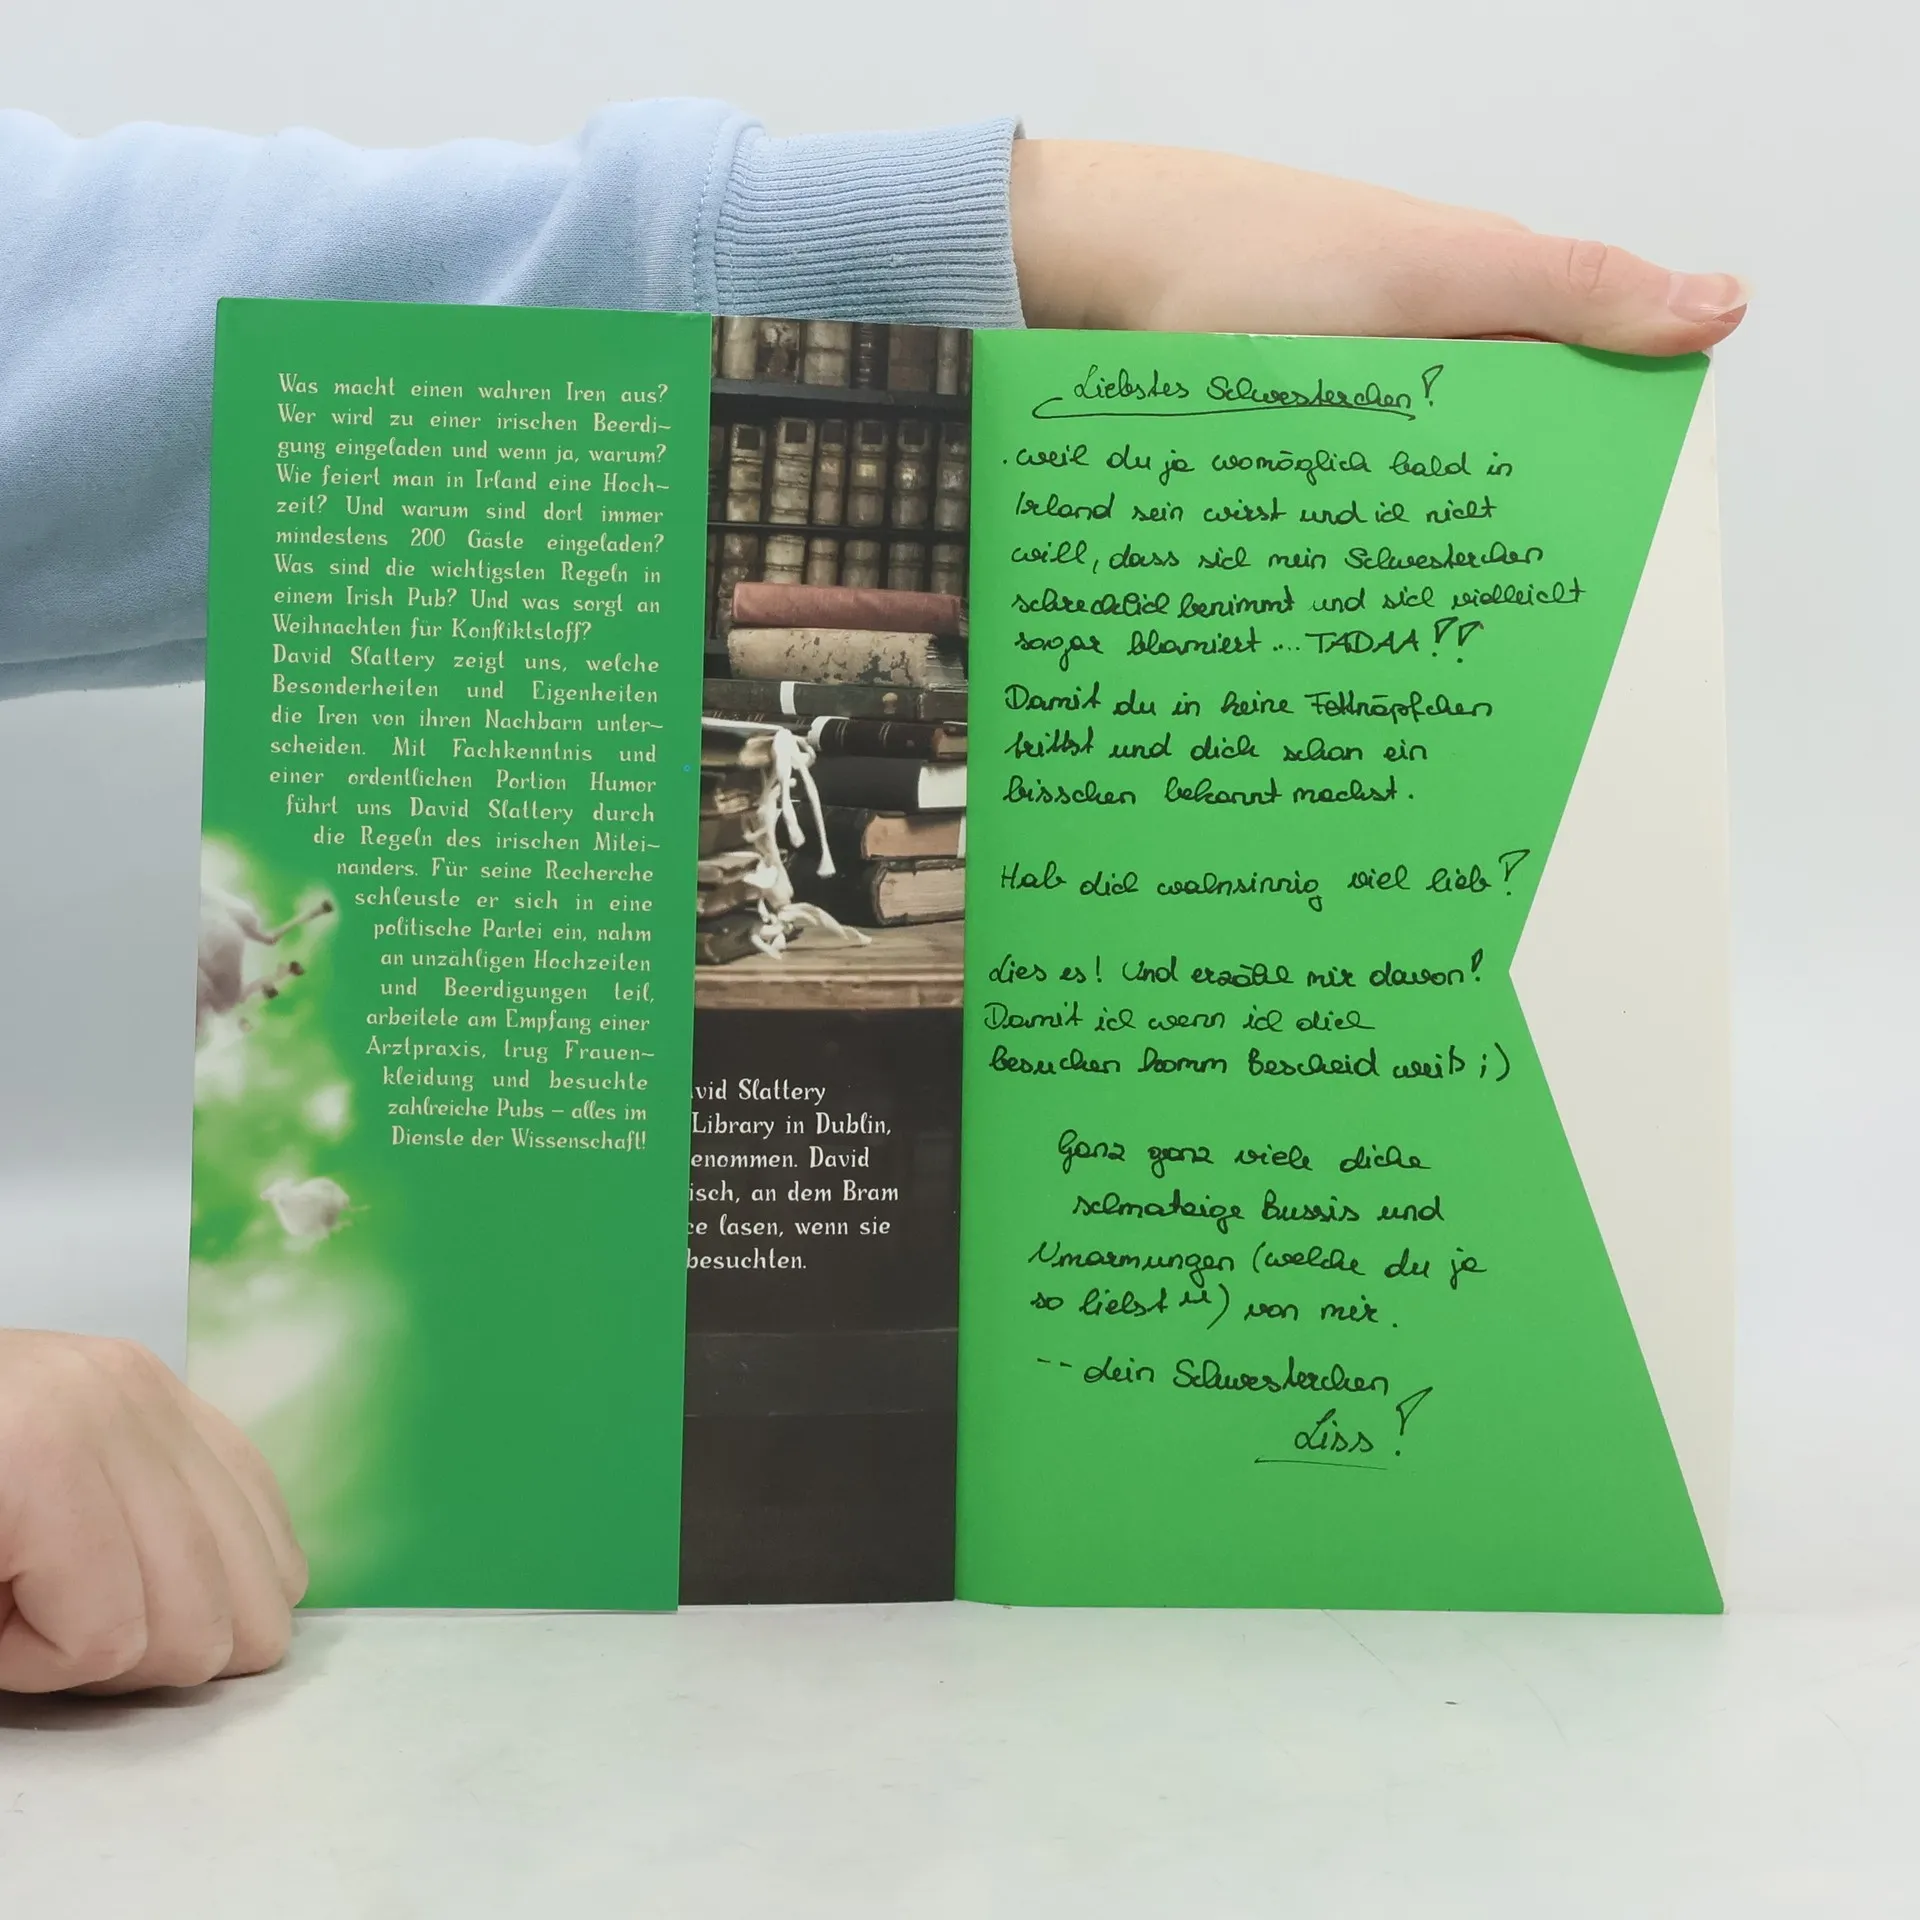 Was macht einen wahren Iren aus?
Wer wird zu einer irischen Beerdi-
gung eingeladen und wenn ja, warum?
Wie feiert man in Irland eine Hoch-
zeit? Und warum sind dort immer
mindestens 200 Gäste eingeladen?
Was sind die wichtigsten Regeln in
einem Irish Pub? Und was sorgt an
Weihnachten für Konfliktstoff?
David Slattery zeigt uns, welche
Besonderheiten und Eigenheiten
die Iren von ihren Nachbarn unter-
scheiden. Mit Fachkenntnis und
einer ordentlichen Portion Humor
führt uns David Slattery durch
die Regeln des irischen Mitei-
nanders. Für seine Recherche
schleuste er sich in eine
politische Partei ein, nahm
an unzähligen Hochzeiten
und Beerdigungen teil,
arbeitete am Empfang einer
Arztpraxis, trug Frauen-
kleidung und besuchte
zahlreiche Pubs – alles im
Dienste der Wissenschaft!
vid Slattery
Library in Dublin,
enommen. David
isch, an dem Bram
ce lasen, wenn sie
besuchten.
Liebstes Schwesterchen!
weil du ja womöglich bald in
Irland sein wirst und ich nicht
will, dass sich mein Schwesterchen
schrecklich benimmt und sich vielleicht
sogar blamiert .... TADAA!!
Damit du in keine Fettnäpfchen
trittst und dich schon ein
bisschen bekannt machst.
Hab dich wahnsinnig viel lieb!
Lies es! Und erzähl mir davon!
Damit ich wenn ich dich
besuchen komm Bescheid weiß ;)
Ganz ganz viele dicke
schmatzige Bussis und
Umarmungen (welche du ja
so liebst ) von mir.
-- dein Schwesterchen
Liss!